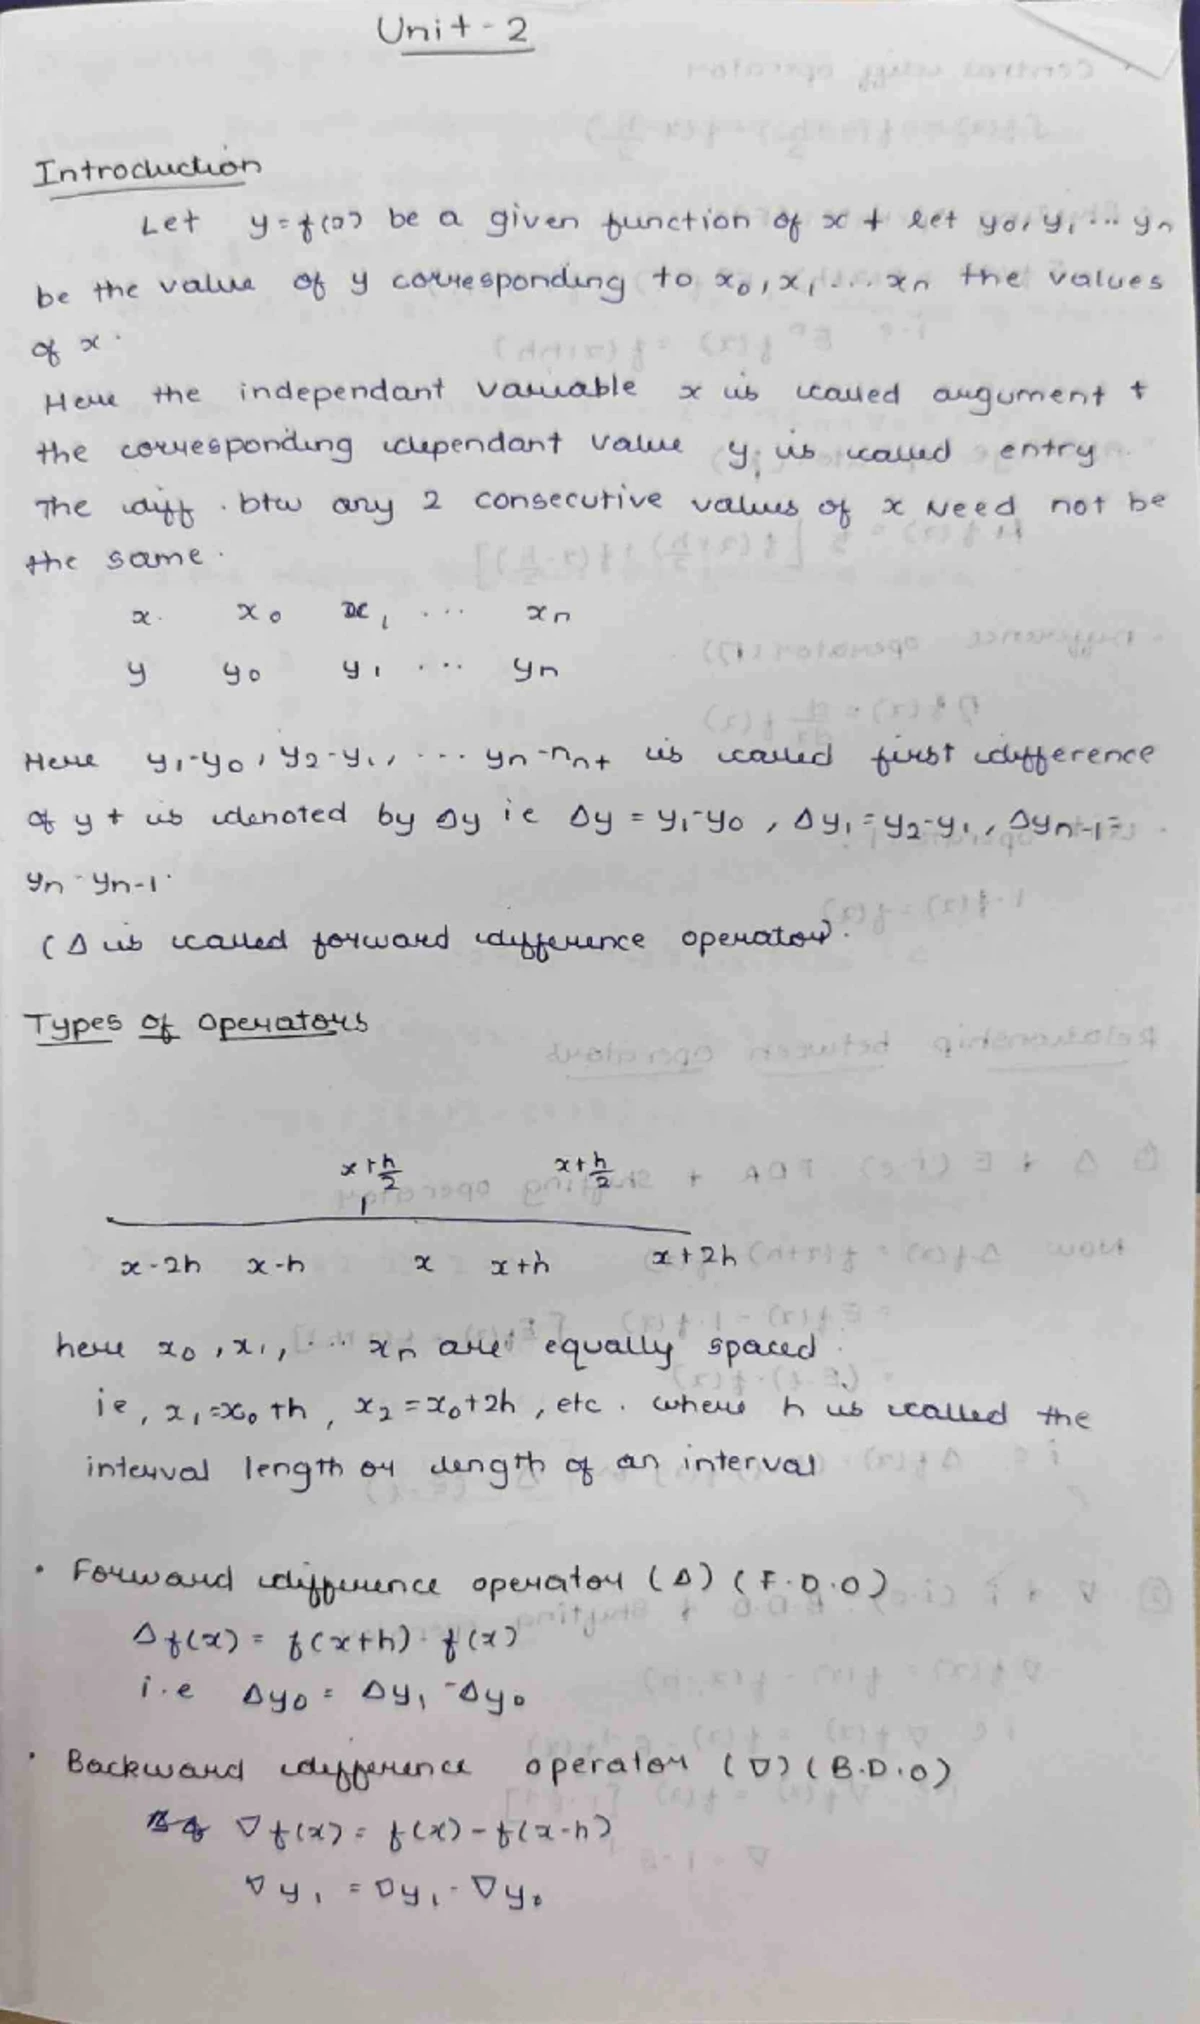 Unit-2
Introduction
Let y=f(x) be a given function of x + let y0, y1 ... yn
be the value of y corresponding to x0, x1 ... xn the values
of x.
Here the independant variable x is called argument +
the corresponding dependant value y, is called entry.
The diff. btw any 2 consecutive values of x Need not be
the same.
x x0 x1 ... xn
y y0 y1 ... yn
Here y1-y0, y2-y1, ... yn-nn+ is called first difference
of y + is denoted by Δy ie Δy = y1-y0, Δy1=y2-y1, Δyn-1=
yn-yn-1.
(Δ is called forward difference operator).
Types of Operators
x+h/2 x+h/2
x-2h x-h x x+h x+2h
here x0, x1, ... xn are equally spaced.
ie, x1=x0+h, x2=x0+2h, etc. where h is called the
interval length or length of an interval
• Forward difference operator (Δ) (F.D.O)
Δf(x) = f(x+h) - f(x)
i.e Δy0 = Δy1 - Δy0
• Backward difference operator (∇) (B.D.O)
∇f(x) = f(x) - f(x-h)
∇y1 = ∇y1 - ∇y0